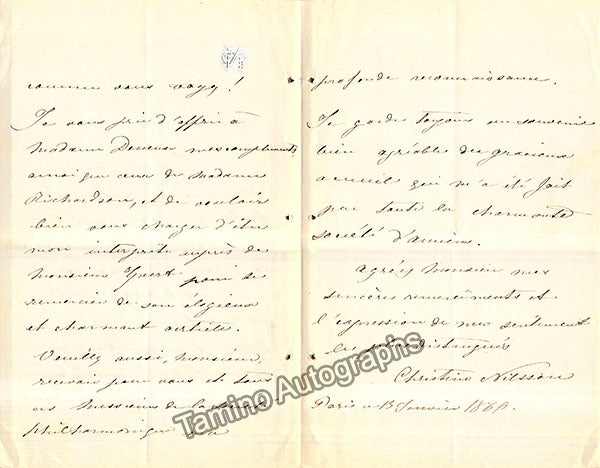 comme vous voyez!
Je vous prie d'offrir à
Madame Deneux mes compliments,
ainsi que ceux de Madame
Richardson, et de vouloir
bien vous charger d'être
mon interprète auprès de
Monsieur Yvert pour le
remercier de son élogieux
et charmant article.
Veuillez aussi, Monsieur,
recevoir pour vous et tous
ces Messieurs de la
philharmonique ma
profonde reconnaissance.
Je garde toujours un souvenir
bien agréable du gracieux
accueil qui m'a été fait
par toute la charmante
société d'Amiens.
Agréez Monsieur mes
sincères remerciements et
l'expression de mes sentiments
les plus distingués
Christine Nilsson
Paris 13 Janvier 1866.
Tamino Autographs